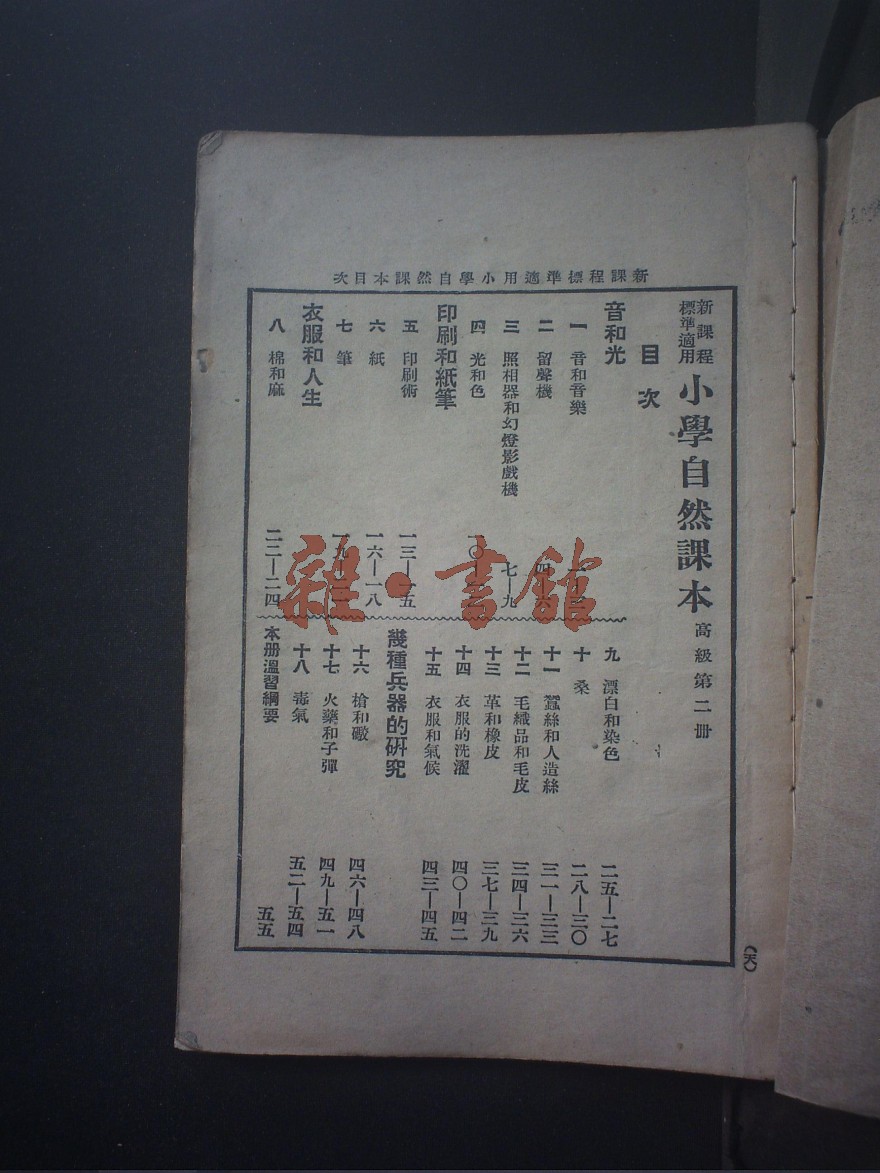 新課程標準適用小學自然課本目次
新課程
標準適用
小學自然課本 高級第二冊
目次
音和光
一 音和音樂
二 留聲機
三 照相器和幻燈影戲機 七—九
四 光和色
印刷和紙筆
五 印刷術 一三—一五
六 紙 一六—一八
七 筆
衣服和人生
八 棉和麻 二二—二四
九 漂白和染色 二五—二七
十 桑 二八—三〇
十一 蠶絲和人造絲 三一—三三
十二 毛織品和毛皮 三四—三六
十三 革和橡皮 三七—三九
十四 衣服的洗濯 四〇—四二
十五 衣服和氣候 四三—四五
幾種兵器的研究
十六 槍和礮 四六—四八
十七 火藥和子彈 四九—五一
十八 毒氣 五二—五四
本册溫習綱要 五五
雜·書館